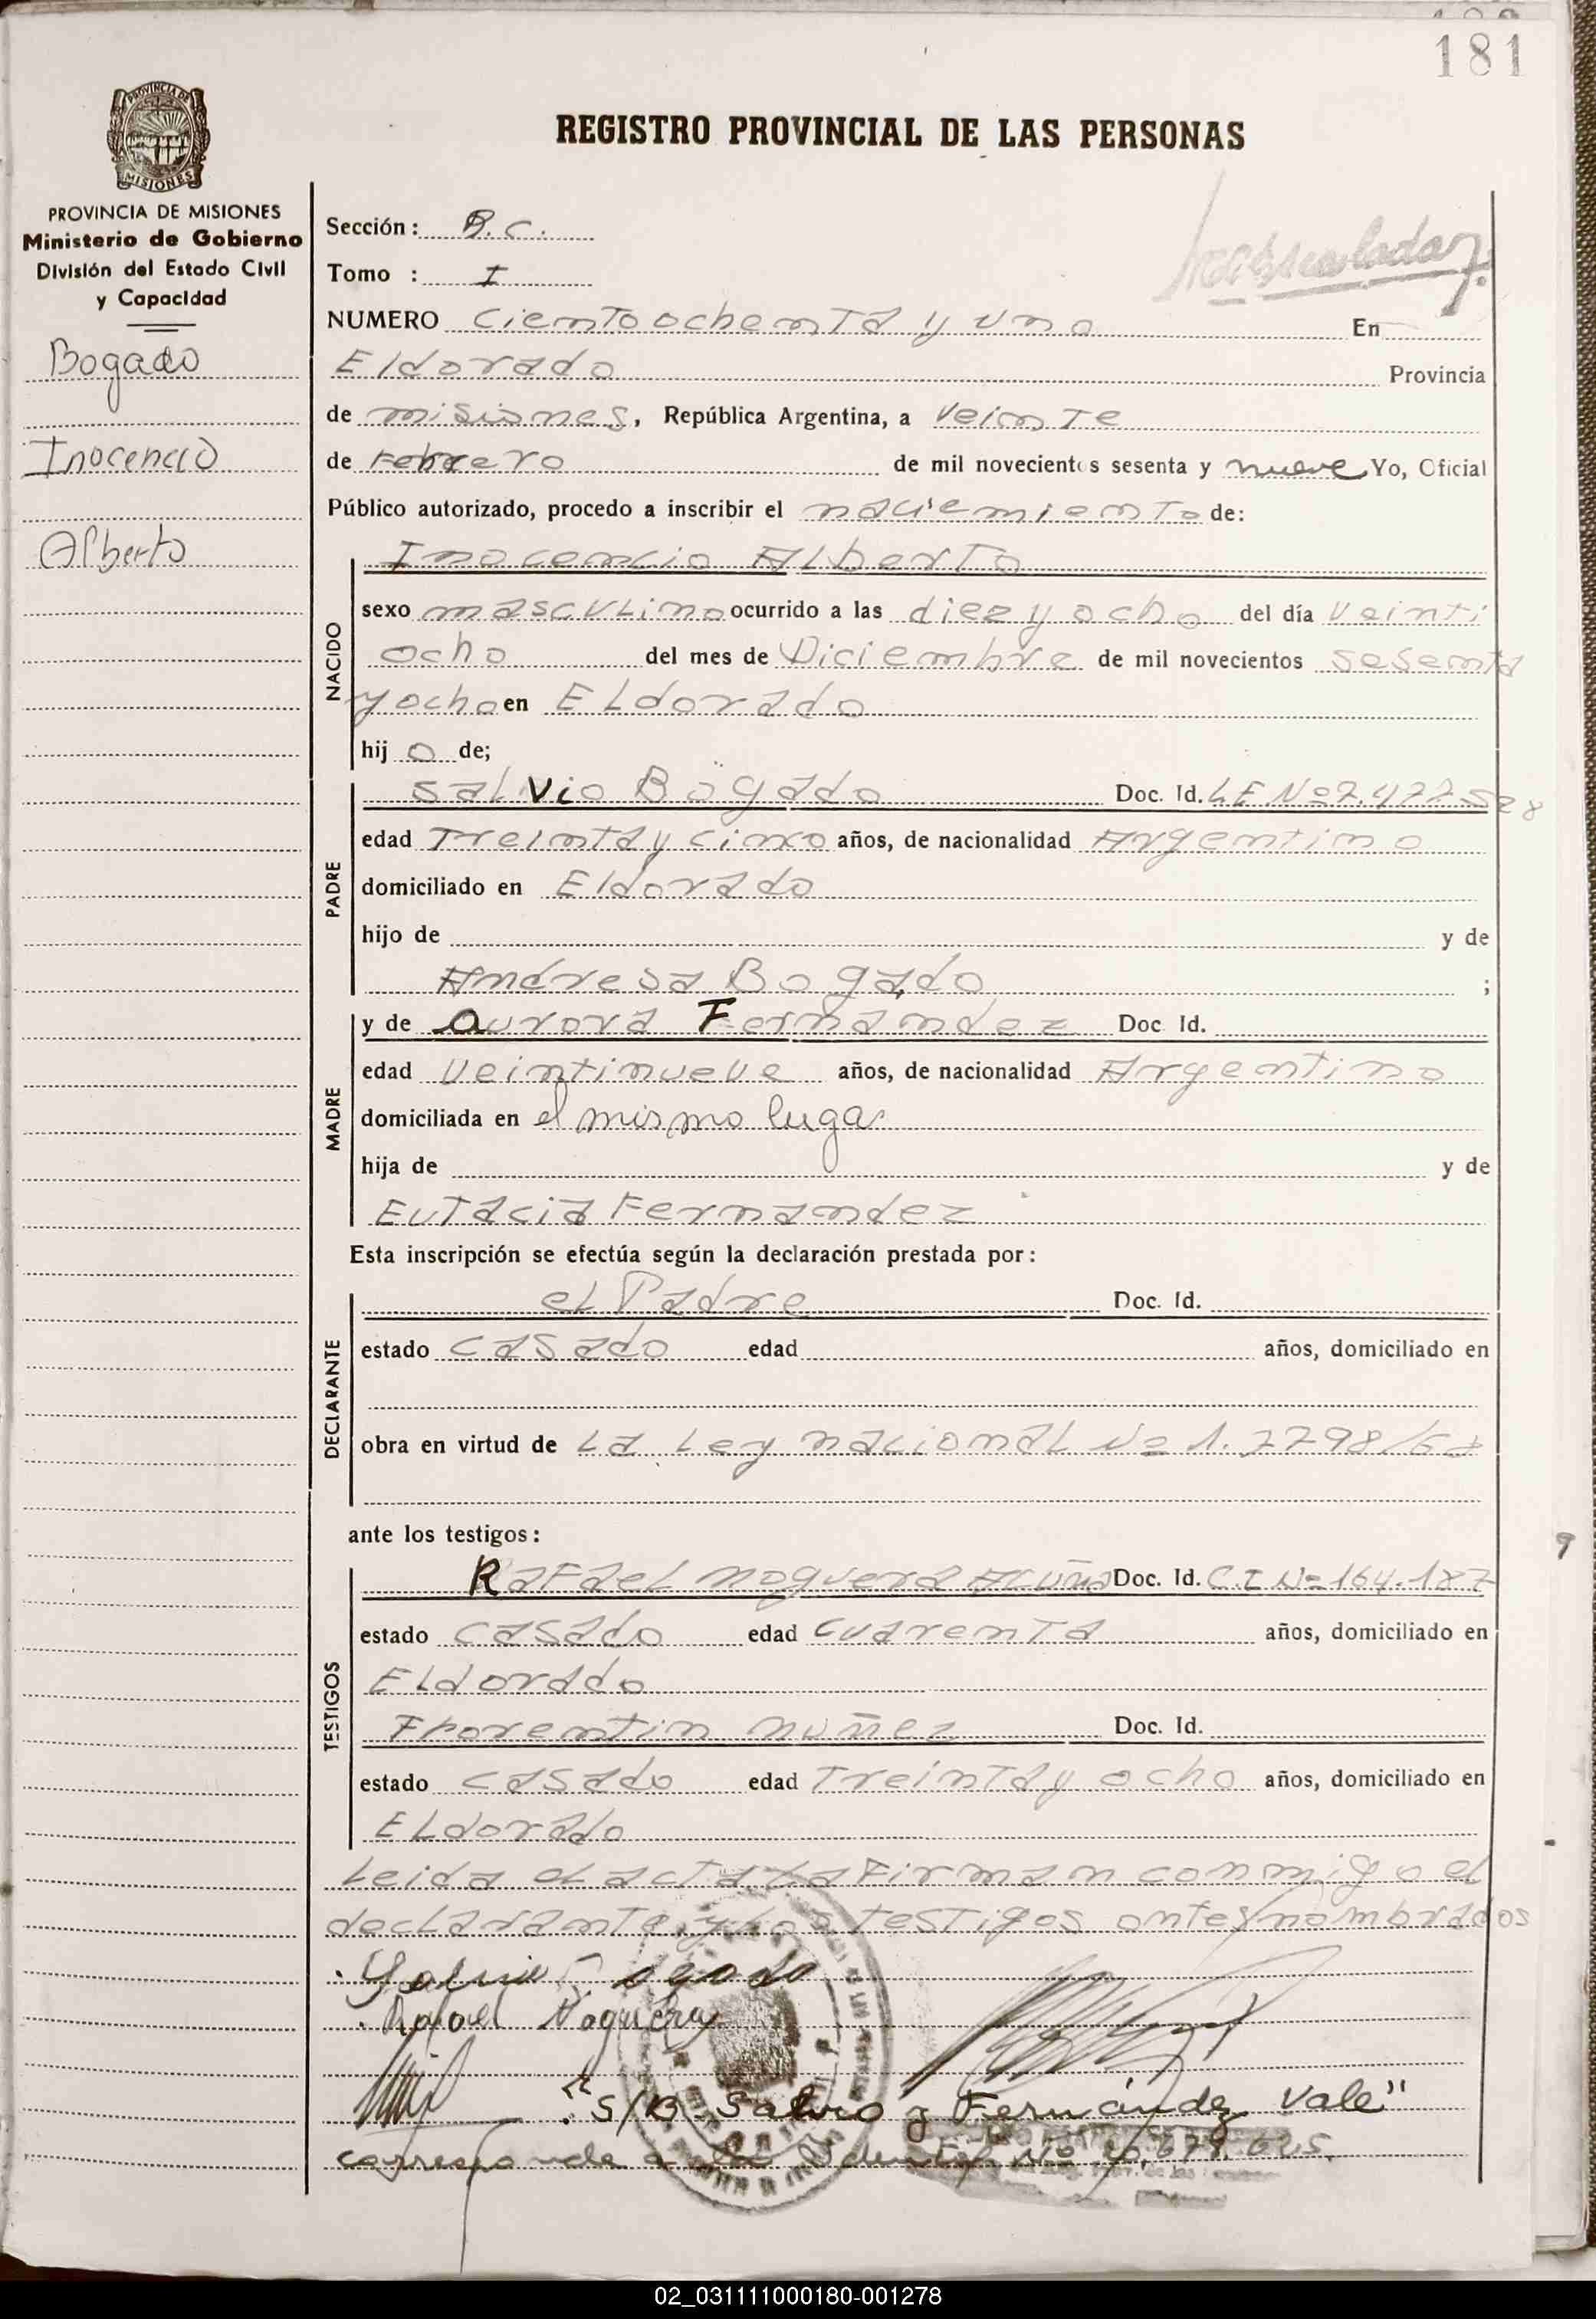 181
REGISTRO PROVINCIAL DE LAS PERSONAS
PROVINCIA DE
MISIONES
PROVINCIA DE MISIONES
Ministerio de Gobierno
División del Estado Civil
y Capacidad
Bogado
Inocencio
Alberto
Sección: B.C.
Tomo : I
NUMERO Ciento ochenta y uno En
Eldorado Provincia
de misiones, República Argentina, a veinte
de Febrero de mil novecientos sesenta y nueve Yo, Oficial
Público autorizado, procedo a inscribir el naciemiento de:
NACIDO
Inocencio Alberto
sexo masculino ocurrido a las diez y ocho del día veinti
ocho del mes de Diciembre de mil novecientos sesenta
y ocho en Eldorado
hij o de;
PADRE
Salvio Bogado Doc. Id. L.E Nº 7.477.528
edad Treinta y cinco años, de nacionalidad Argentino
domiciliado en Eldorado
hijo de y de
Andresa Bogado ;
MADRE
y de Aurora Fernandez Doc. Id.
edad Veintinueve años, de nacionalidad Argentino
domiciliada en el mismo lugar
hija de y de
Eutacia Fernandez
Esta inscripción se efectúa según la declaración prestada por:
DECLARANTE
el Padre Doc. Id.
estado casado edad años, domiciliado en
obra en virtud de La Ley nacional Nº 1.7798/68
ante los testigos:
TESTIGOS
Rafael noguera Acuña Doc. Id. C.I Nº 164.187
estado casado edad cuarenta años, domiciliado en
Eldorado
Florentin nuñez Doc. Id.
estado casado edad Treinta y ocho años, domiciliado en
Eldorado
Leida el acta La Firman conmigo el
declarante y los testigos antes nombrados
Salvio Bogado
Rafael Noguera
"S/B. Salvio y Fernández Vale"
corresponde a la Identif. Nº
02_031111000180-001278